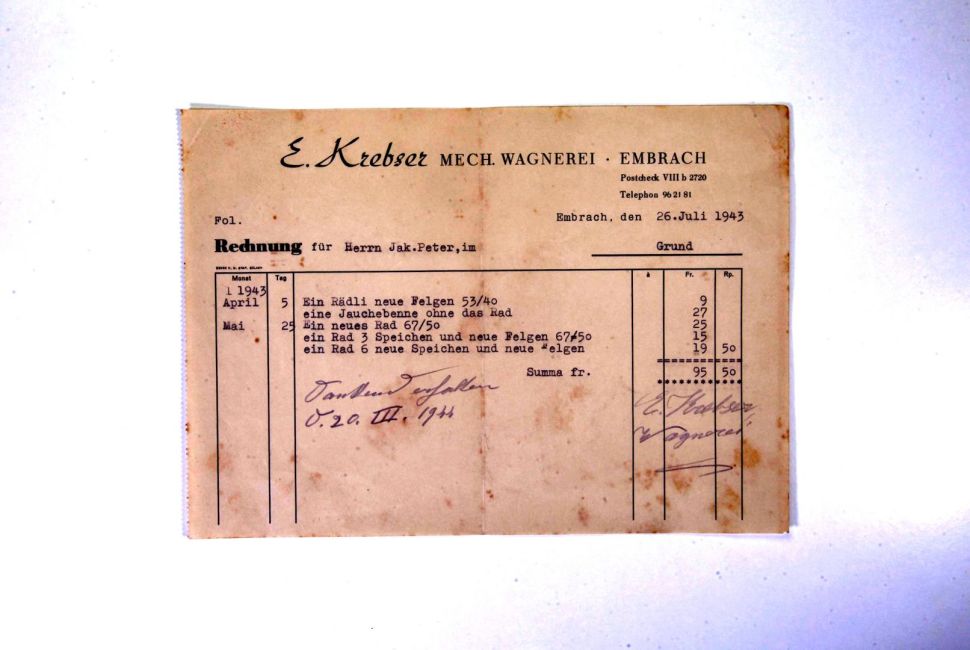 E. Krebser MECH. WAGNEREI · EMBRACH
Postcheck VIII b 2720
Telephon 96 21 81
Fol.
Embrach, den 26.Juli 1943
Rechnung für Herrn Jak.Peter,im Grund
Monat Tag à Fr. Rp.
1943
April 5 Ein Rädli neue Felgen 53/40 9
eine Jauchebenne ohne das Rad 27
Mai 25 Ein neues Rad 67/50 25
ein Rad 3 Speichen und neue Felgen 67/50 15
ein Rad 6 neue Speichen und neue Felgen 19 50
Summa fr. 95 50
Dankend erhalten
d. 20. III. 1944
E. Krebser
Wagnerei